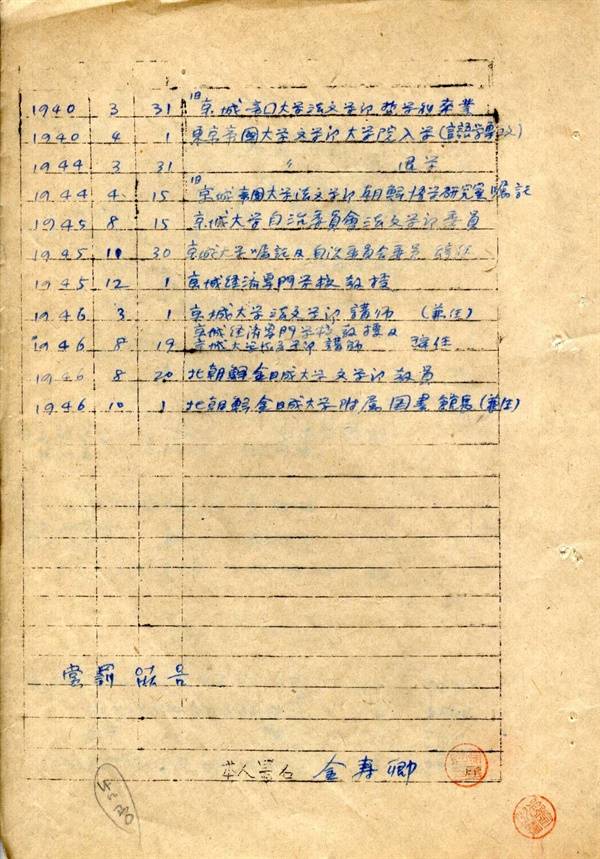 1940 3 31 旧京城帝口大学法文学卩哲学科卒業
1940 4 1 東京帝國大学文学卩大学院入学(言語学専攻)
1944 3 31 〃 退学
1944 4 15 旧京城帝國大学法文学卩朝鮮語学研究室嘱託
1945 8 15 京城大学自治委員會法文学卩委員
1945 11 30 京城大学嘱託及自治委員会委員 辞任
1945 12 1 京城経済専門学校教授
1946 3 1 京城大学法文学卩講師 (兼任)
1946 8 19 京城経済専門学校教授及
京城大学法文学卩講師 辞任
1946 8 20 北朝鮮金日成大学文学卩教員
1946 10 1 北朝鮮金日成大学附属図書館長(兼任)
賞罰
本人署名 金寿卿